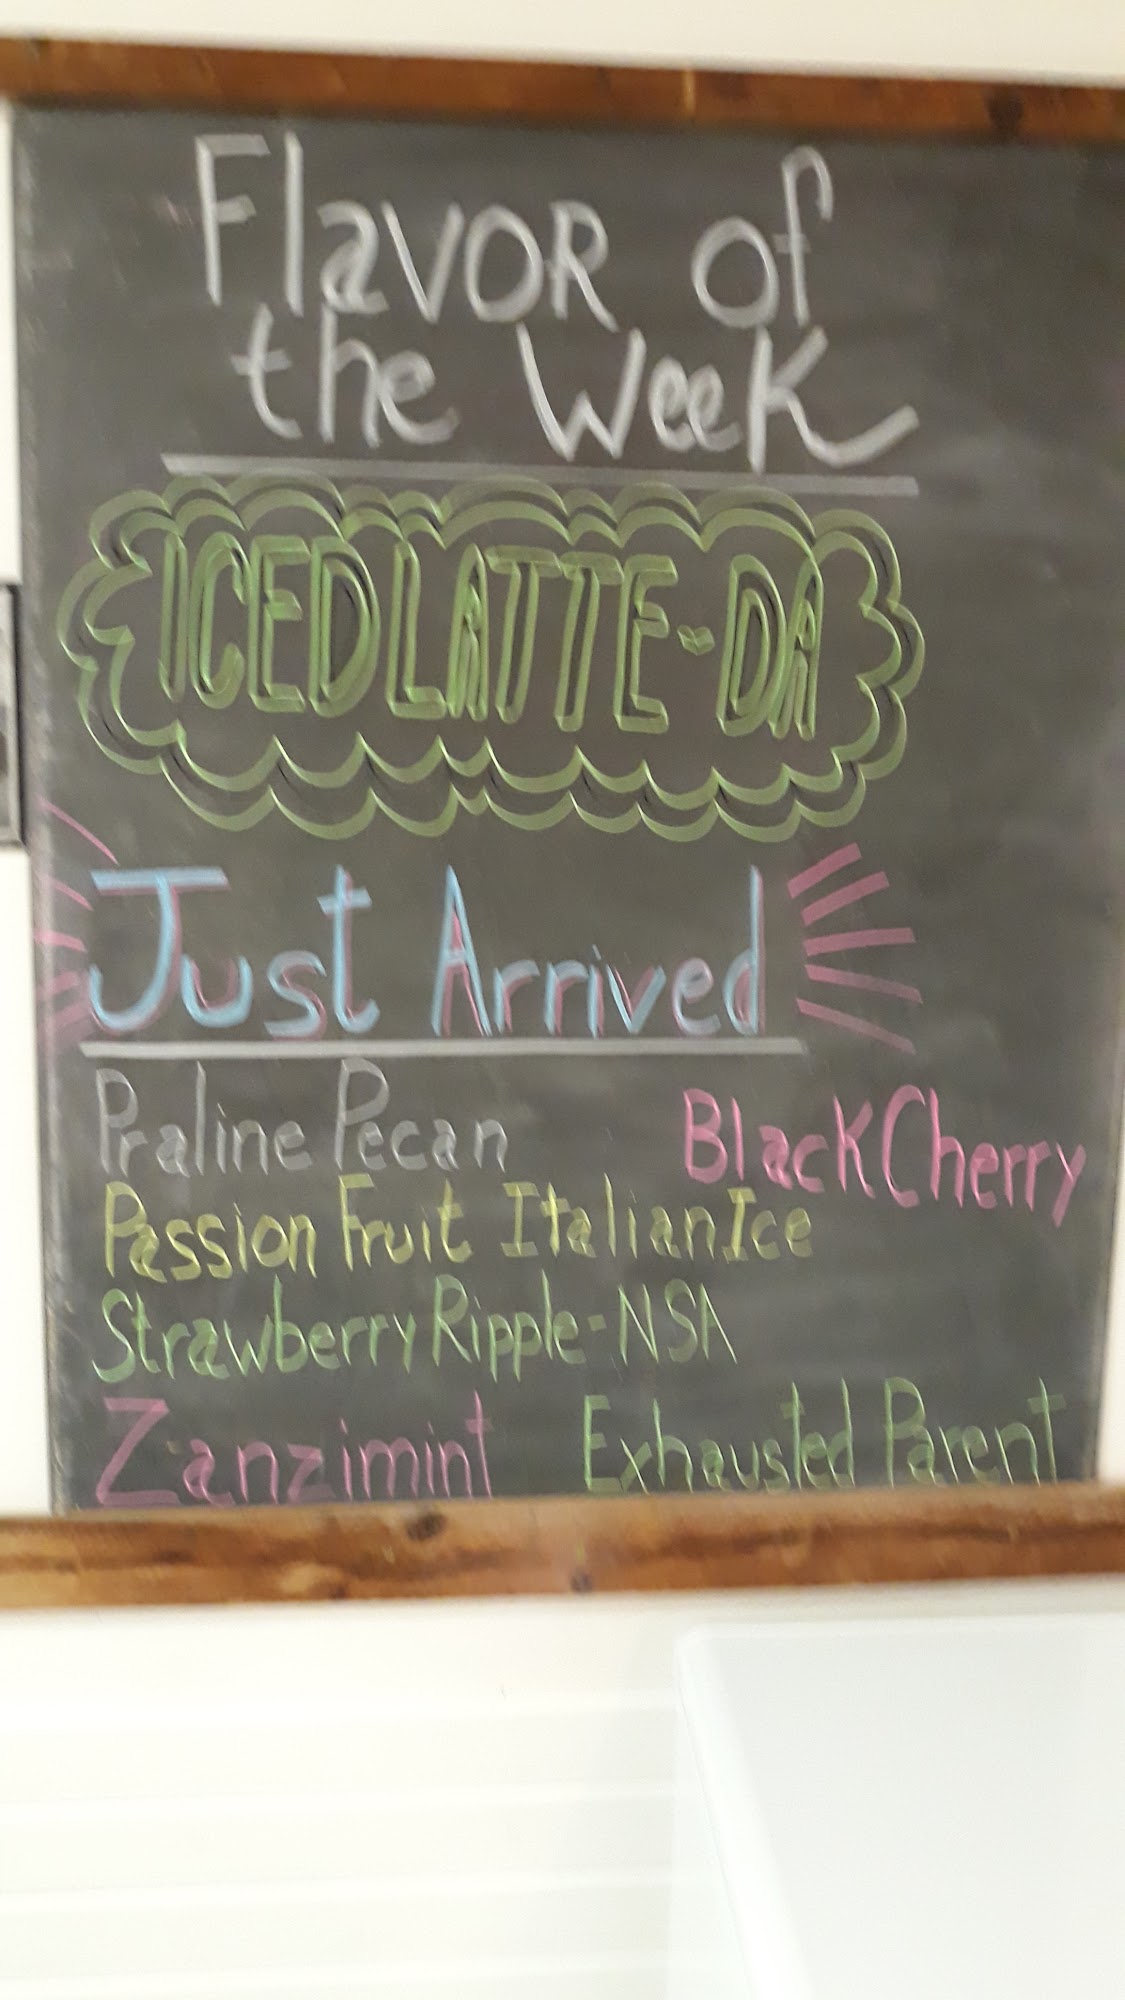 Flavor of
the Week
ICED LATTE-DA
Just Arrived
Praline Pecan
Black Cherry
Passion Fruit Italian Ice
Strawberry Ripple-NSA
Zanzimint
Exhausted Parent